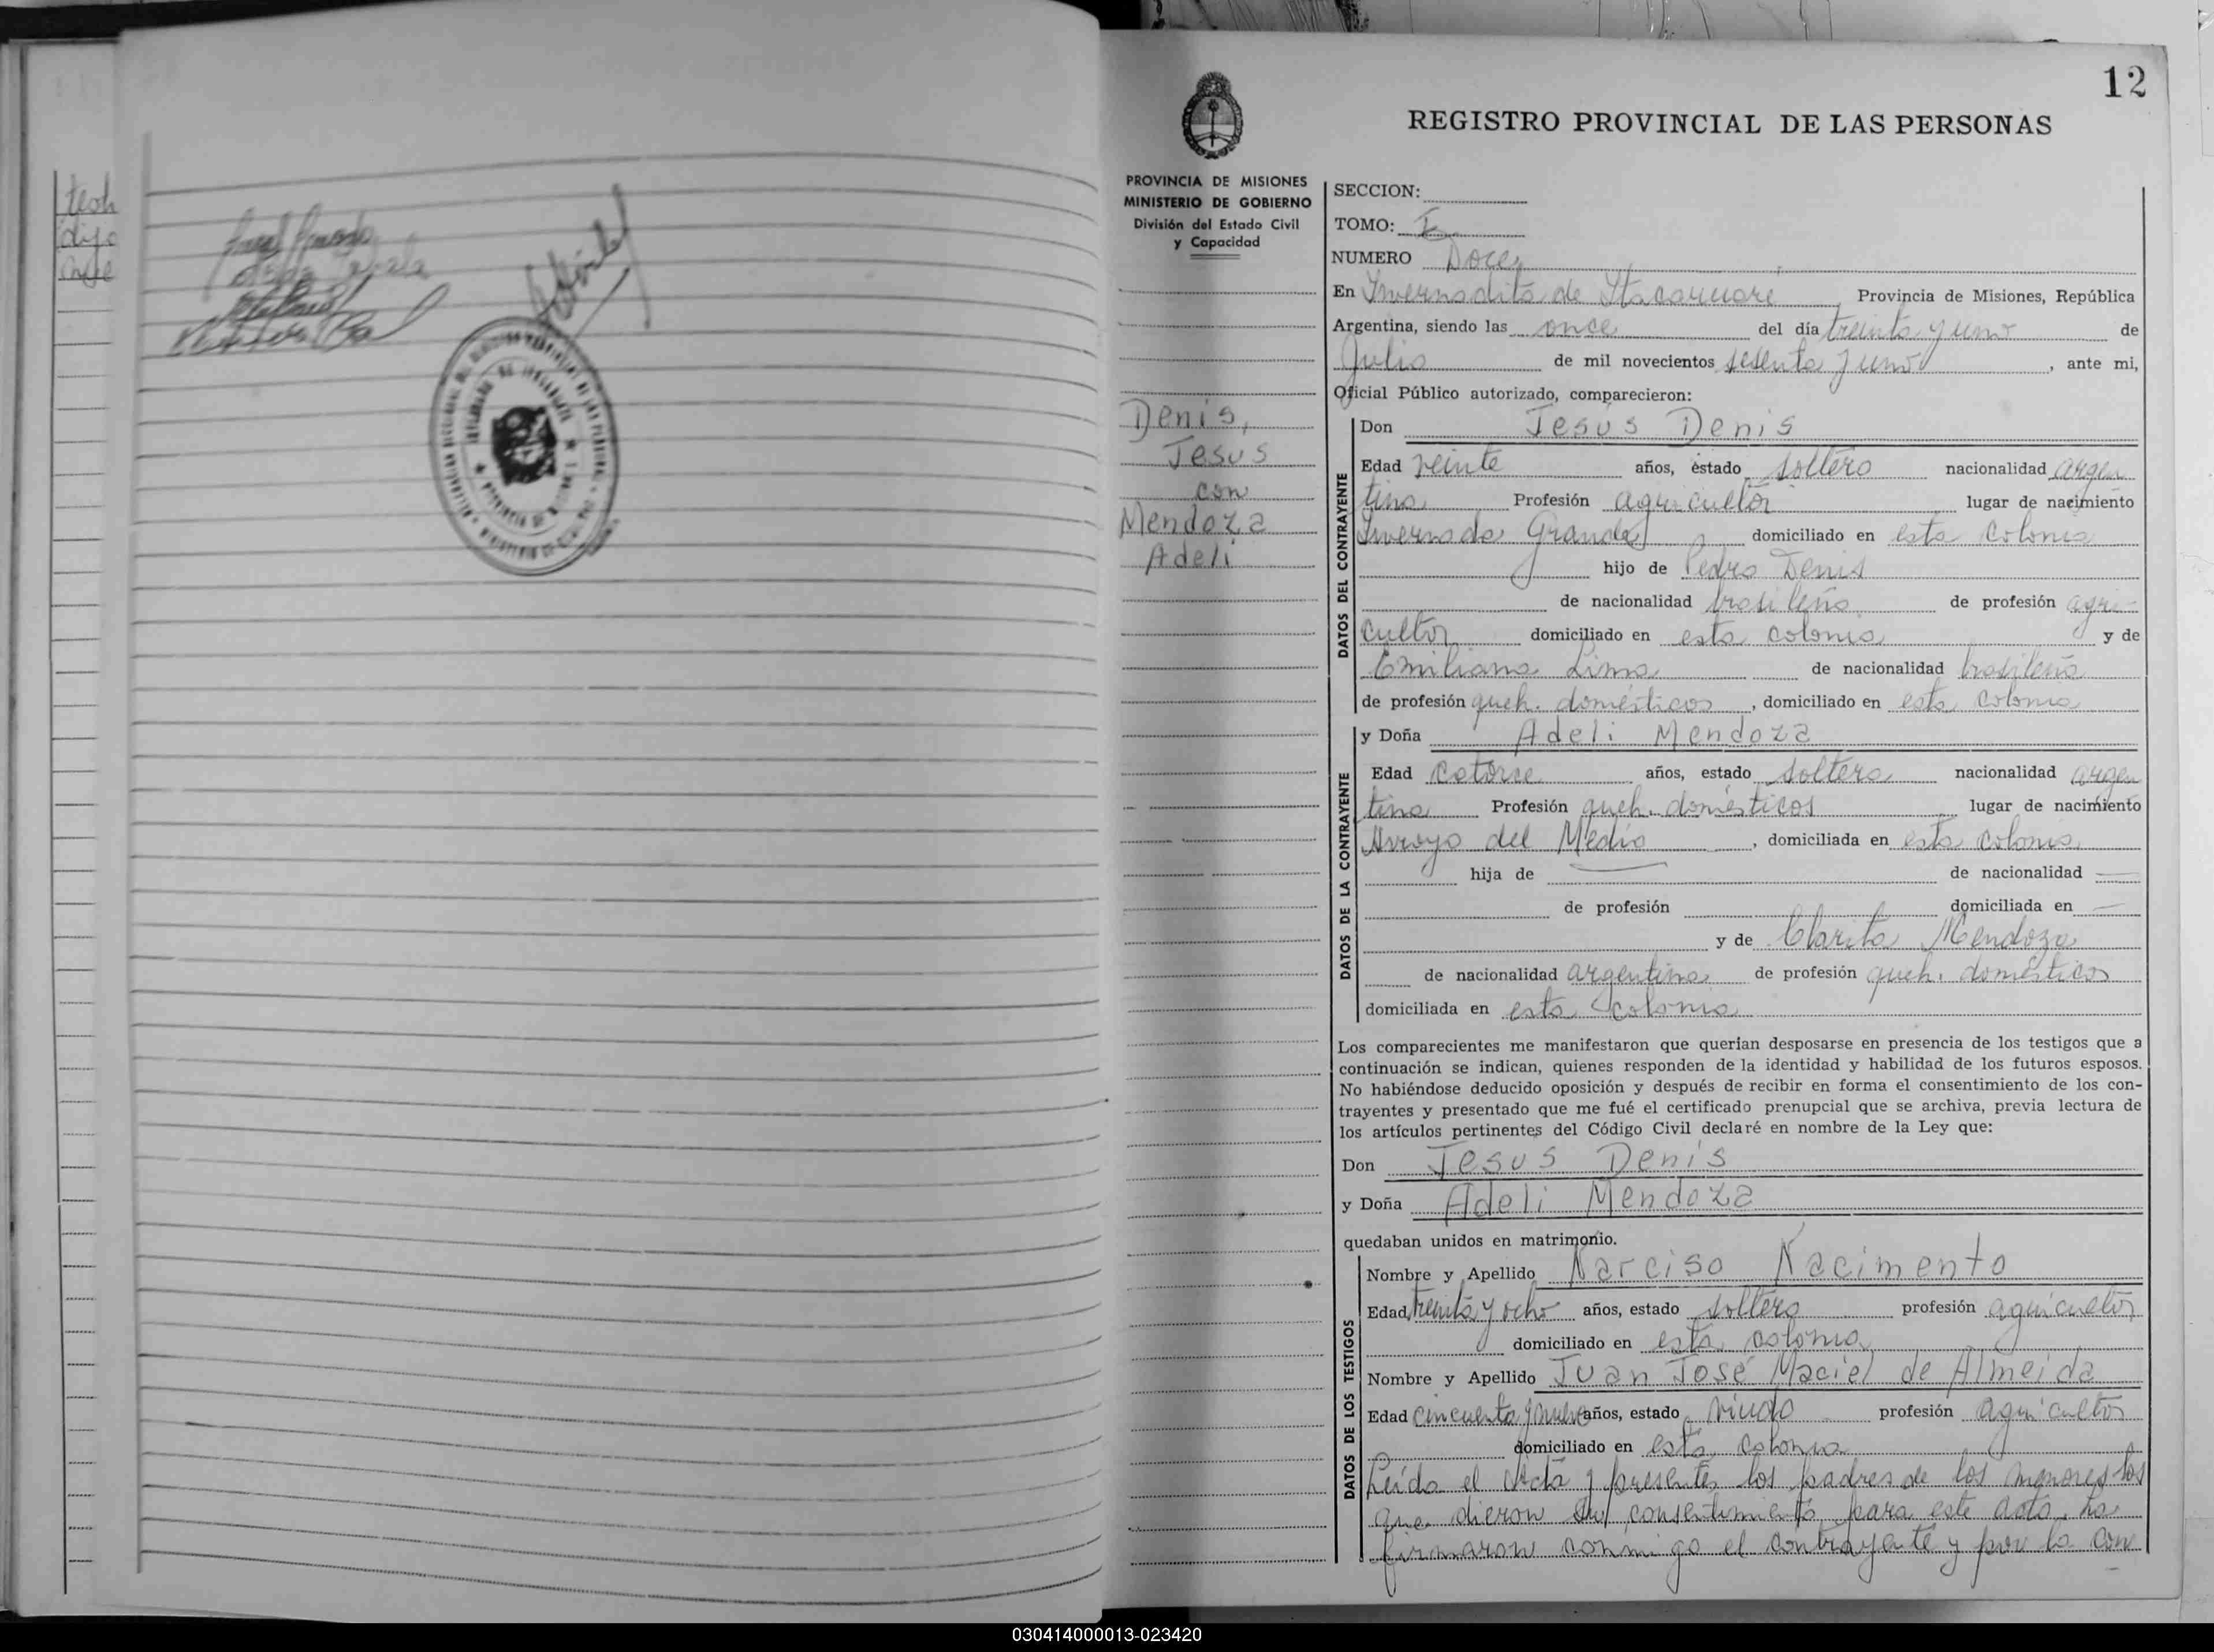 tesh
dijo
12
REGISTRO PROVINCIAL DE LAS PERSONAS
PROVINCIA DE MISIONES
MINISTERIO DE GOBIERNO
División del Estado Civil
y Capacidad
Denis,
Jesus
con
Mendoza
Adeli
SECCION:
TOMO: I
NUMERO Doce
En Invernadita de Itacaruaré Provincia de Misiones, República
Argentina, siendo las once del día treinta y uno de
Julio de mil novecientos sesenta y uno, ante mi,
Oficial Público autorizado, comparecieron:
DATOS DEL CONTRAYENTE
Don Jesús Denis
Edad veinte años, estado soltero nacionalidad argen
tina Profesión agricultor lugar de nacimiento
Invernada Grande domiciliado en esta Colonia
hijo de Pedro Denis
de nacionalidad brasileña de profesión agri-
cultor domiciliado en esta colonia y de
Emiliana Lima de nacionalidad brasileña
de profesión queh. domésticos, domiciliado en esta colonia
DATOS DE LA CONTRAYENTE
y Doña Adeli Mendoza
Edad catorce años, estado soltera nacionalidad argen
tina Profesión queh. domésticos lugar de nacimiento
Arroyo del Medio, domiciliada en esta colonia
hija de — de nacionalidad —
de profesión domiciliada en —
y de Clarita Mendoza
de nacionalidad argentina de profesión queh. domésticos
domiciliada en esta Colonia
Los comparecientes me manifestaron que querían desposarse en presencia de los testigos que a
continuación se indican, quienes responden de la identidad y habilidad de los futuros esposos.
No habiéndose deducido oposición y después de recibir en forma el consentimiento de los con-
trayentes y presentado que me fué el certificado prenupcial que se archiva, previa lectura de
los artículos pertinentes del Código Civil declaré en nombre de la Ley que:
Don Jesus Denis
y Doña Adeli Mendoza
quedaban unidos en matrimonio.
DATOS DE LOS TESTIGOS
Nombre y Apellido Narciso Nacimento
Edad treinta y ocho años, estado soltero profesión agricultor
domiciliado en esta colonia
Nombre y Apellido Juan José Maciel de Almeida
Edad cincuenta y nueve años, estado viudo profesión agricultor
domiciliado en esta colonia
Leída el Acta y presentes los padres de los menores los
que dieron su consentimiento para este acto, la
firmaron conmigo el contrayente y por la con
030414000013-023420